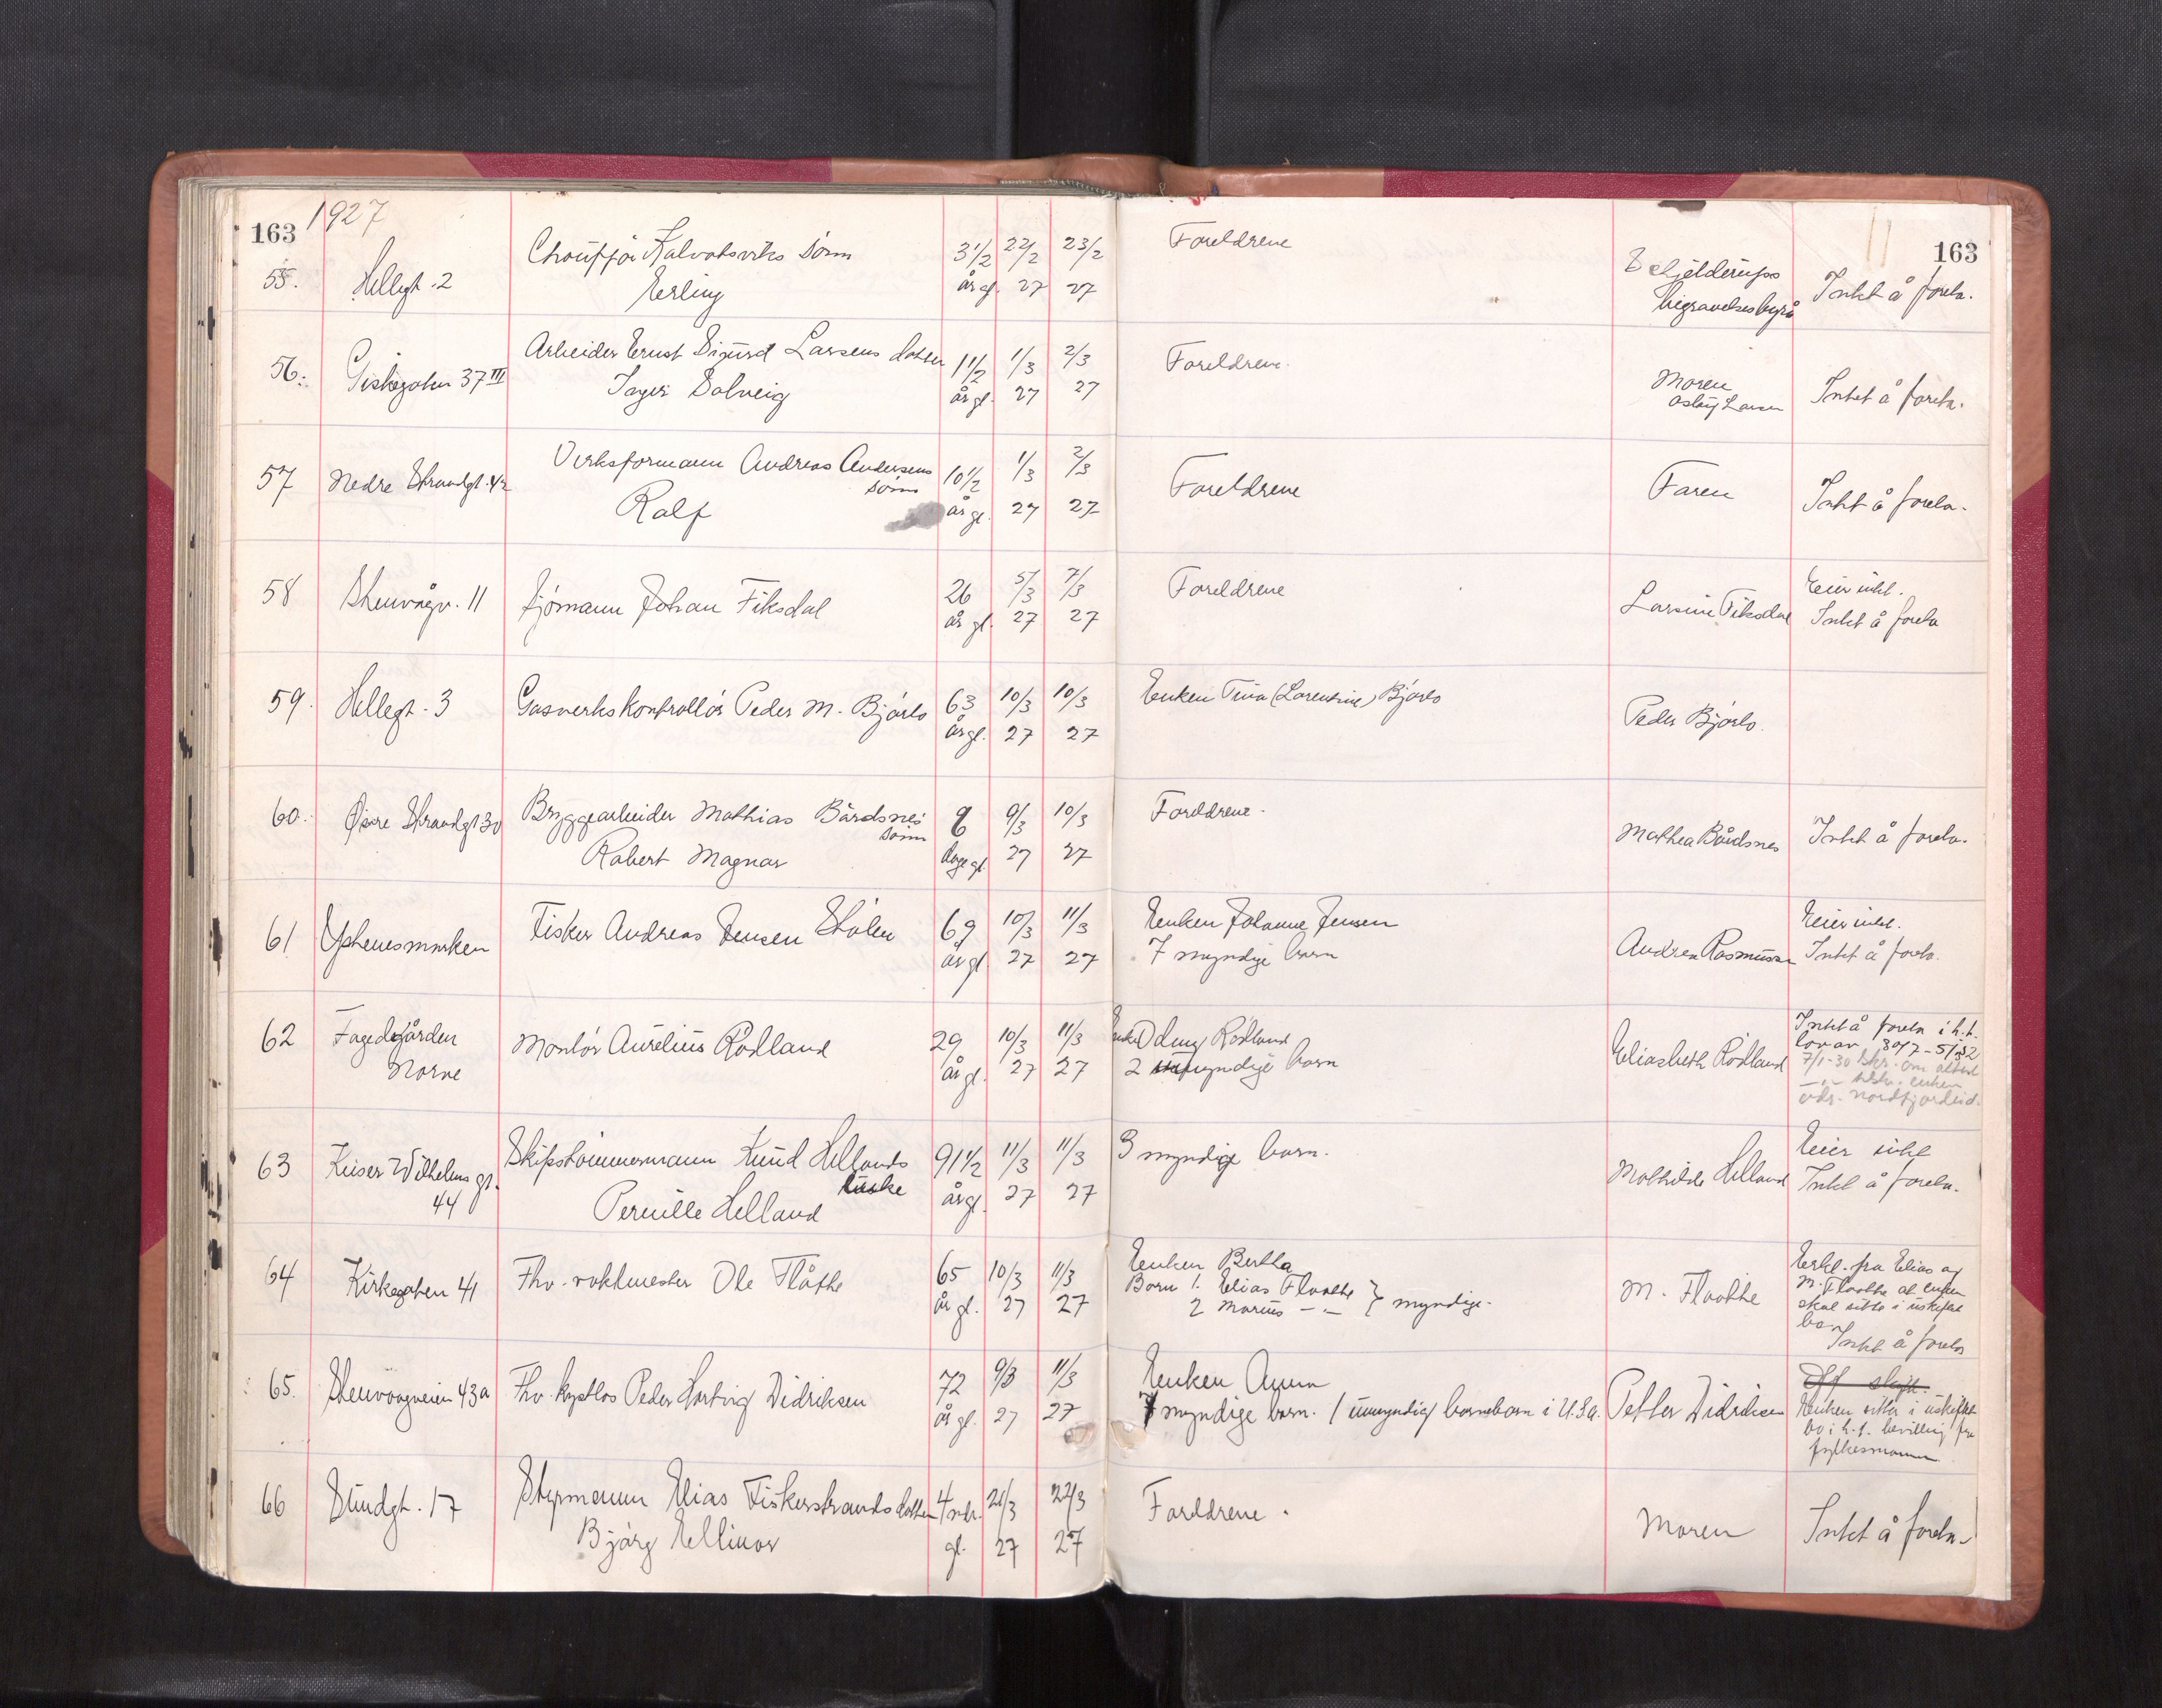 163 1927
163
55. Hellegt. 2
Chauffør Kalvatsviks sønn
Erling
3 1/2 år gl. 22/2 27 23/2 27
Foreldrene
begravelsesbyrå
Intet å foreta.
56. Giskegaten 37 III
Arbeider Ernst Sigurd Larsens datter
Inger Solveig
11/2 år gl. 1/3 27 2/3 27
Foreldrene.
Moren
Aslaug Larsen
Intet å foreta.
57 Nedre Strandgt. 42
Verksformann Andreas Andersens
sønn
Ralf
10 1/2 år gl. 1/3 27 2/3 27
Foreldrene
Faren
Intet å foreta.
58 Steinvågv. 11
Sjømann Johan Fiksdal
26 år gl. 5/3 27 7/3 27
Foreldrene
Larsine Fiksdal
Eier intet.
Intet å foreta
59. Hellegt. 3
Gasverkskontrollør Peder M. Bjørlo
63 år gl. 10/3 27 10/3 27
Enken Tina (Lorentine) Bjørlo
Peder Bjørlo.
60. Øvre Strandgt 30
Bryggearbeider Mathias Bårdsnes
sønn
Robert Magnar
dage gl. 9/3 27 10/3 27
Foreldrene.
Mathea Bårdsnes
Intet å foreta.
61 Yshenesmarken
Fisker Andreas Jensen Støler
69 år gl. 10/3 27 11/3 27
Enken Johanne Jensen
7 myndige barn
Andrea Rasmussen
Eier intet.
Intet å foreta.
62 Fagedgården
Nørve
Montør Aurelius Rødland
29 år gl. 10/3 27 11/3 27
Enke Rødland
2 myndige barn
Eliasbeth Rødland
Intet å foreta i h.t.
lov av 30/7 - 51
7/1-30 Skr. om attest
enken
adr. Nordfjordeid.
63 Keiser Wilhelms gt.
44
Skipstømmermann Knud Hellands
enke
Pernille Helland
91 1/2 år gl. 11/3 27 11/3 27
3 myndige barn.
Mathilde Helland
Eier intet
Intet å foreta.
64 Kirkegaten 41
Fhv. vaktmester Ole Flåthe
65 år gl. 10/3 27 11/3 27
Enken Bertha
Barn 1. Elias Flaathe
2 Marius -"- } myndige.
M. Flaathe
Erkl. fra Elias og
M. Flaathe at enken
skal sitte i uskiftet
bo.
Intet å foreta
65. Steinvaagveien 43a
Fhv. kystlos Peder Hartvig Didriksen
72 år gl. 9/3 27 11/3 27
Enken Anna
7 myndige barn. 1 umyndig barnebarn i U.S.A.
Petter Didriksen
Off skifte.
Enken sitter i uskiftet
bo i h.t. bevilling fra
fylkesmannen
66 Sundgt. 17
Styrmann Elias Fiskerstrands datter
Bjørg Ellinor
4 mdr. gl. 21/3 27 22/3 27
Foreldrene.
Moren
Intet å foreta.